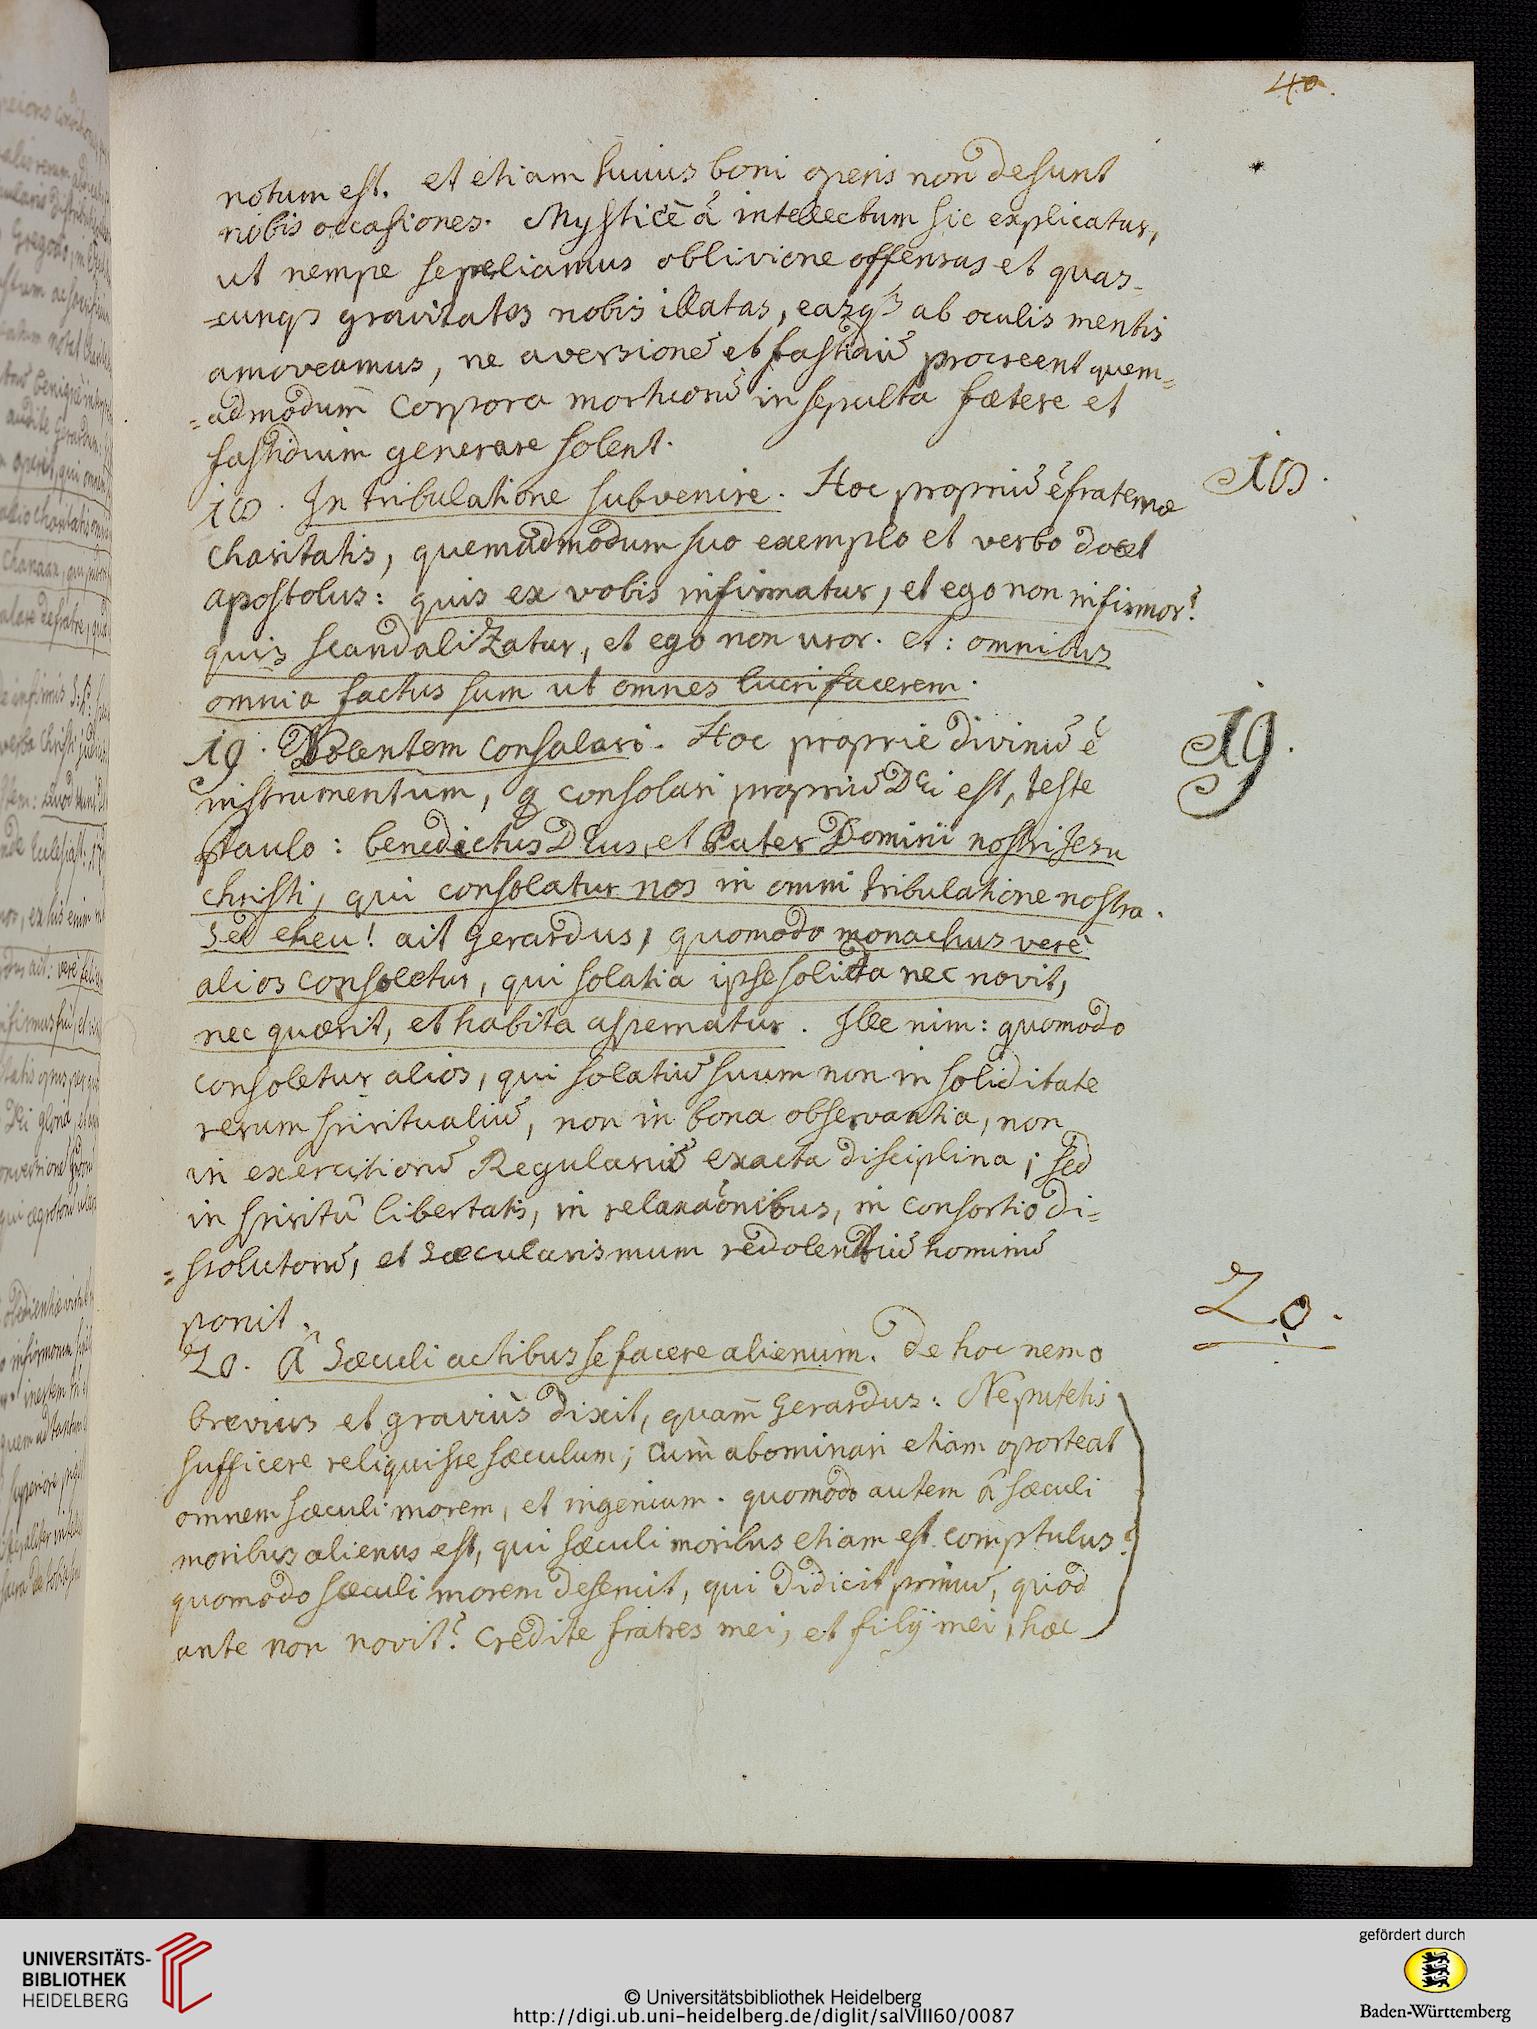 40.
notum est. et etiam huius boni operis non desunt
nobis occasiones. Mysticè á intellectum sic explicatur,
ut nempe sepeliamus oblivione offensas et quas-
-cunqs gravitates nobis illatas, easqs ab oculis mentis
amoveamus, ne aversionē et fastidiū procreent quem=
=admodum corpora mortuorū insepulta fætere et
fastidium generare solent.
18. In tribulatione subvenire. Hoc propriū ē fraternæ
18.
charitatis, quemadmodum suo exemplo et verbo docet
apostolus: quis ex vobis infirmatur, et ego non infirmor?
quis scandalizatur, et ego non uror. et: omnibus
omnia factus sum ut omnes lucrifacerem.
19. Dolentem consolari. Hoc proprie divinū ē
19.
instrumentum, q consolari propriū Dei est, teste
Paulo: benedictus Deus, et Pater Domini nostri Jesu
christi, qui consolatur nos in omni tribulatione nostra.
sed eheu! ait Gerardus, quomodo monachus verè
alios consoletur, qui solatia ipse solida nec novit,
nec quærit, et habita aspernatur. Ille nim: quomodo
consoletur alios, qui solatiū suum non in soliditate
rerum spiritualiū, non in bona observantia, non
in exercitiorū Regulariū exacta disciplina; sed
in spiritu libertatis, in relaxaōnibus, in consortio di=
=ssolutorū, et sæcularismum redolentiū hominū
ponit.
20. â sæculi actibus se facere alienum. De hoc nemo
20.
brevius et graviùs dixit, quam Gerardus: Ne putetis
sufficere reliquisse sæculum; cum abominari etiam oporteat
omnem sæculi morem, et ingenium. quomodo autem â sæculi
moribus alienus est, qui sæculi moribus etiam est comptulus?
quomodo sæculi morem deseruit, qui didicit primū, quod
ante non novit? credite fratres mei, et filij mei, hæc
UNIVERSITÄTS-
BIBLIOTHEK
HEIDELBERG
© Universitätsbibliothek Heidelberg
http://digi.ub.uni-heidelberg.de/diglit/salVIII60/0087
gefördert durch
Baden-Württemberg